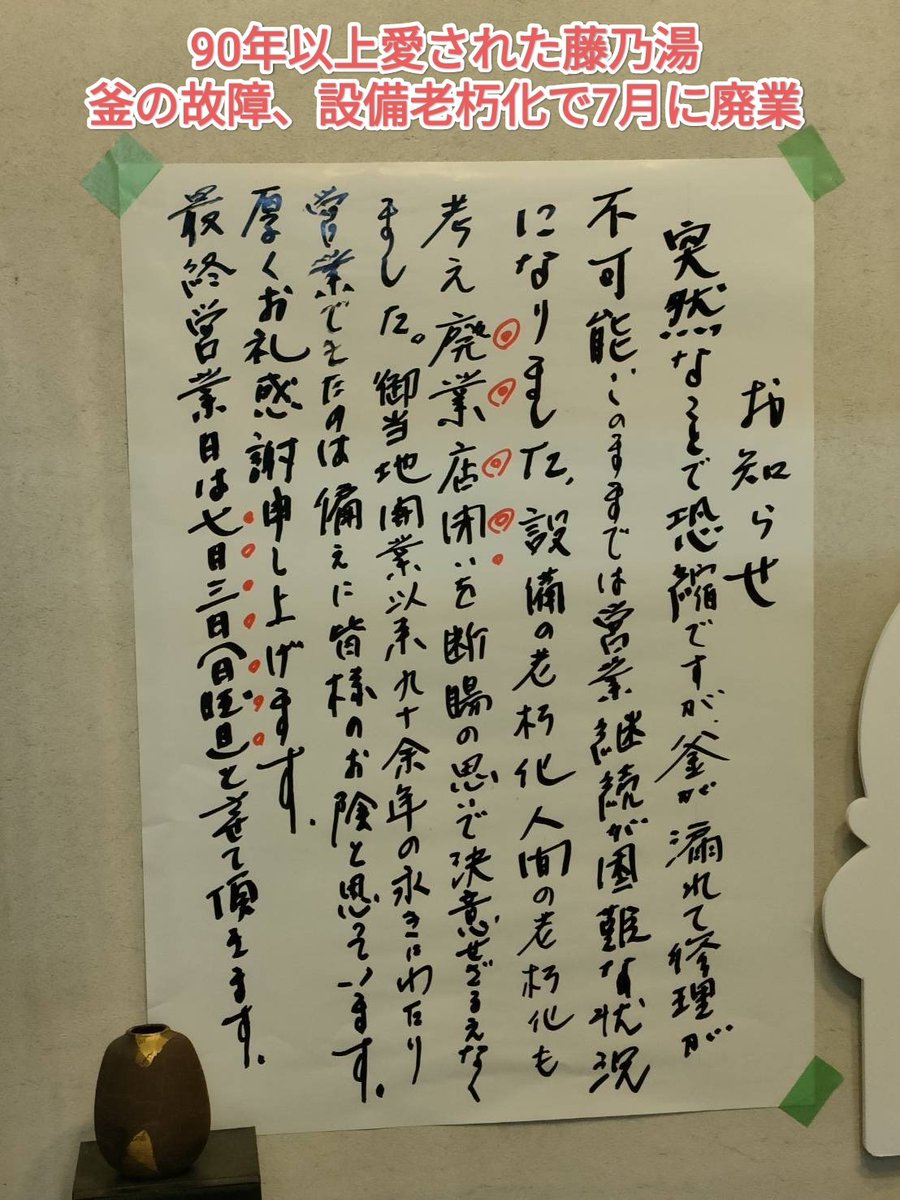 90年以上愛された藤乃湯
釜の故障、設備老朽化で7月に廃業
お知らせ
突然なことで恐縮ですが、釜が漏れて修理が
不可能、このままでは営業継続が困難な状況
になりました、設備の老朽化人間の老朽化も
考え廃業店閉いを断腸の思いで決意せざるえなく
ました。御当地開業以来九十余年の永きにわたり
営業できたのは備えに皆様のお陰と思っています。
厚くお礼感謝申し上げます。
最終営業日は七月三日(日曜日)とさせて頂きます。